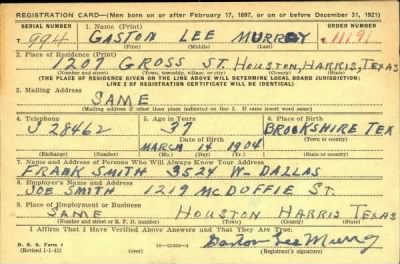 REGISTRATION CARD—(Men born on or after February 17, 1897, or on or before December 31, 1921)
SERIAL NUMBER 1. Name (Print) ORDER NUMBER
T 994 GASTON LEE MURRAY 11191
(First) (Middle) (Last)
2. Place of Residence (Print)
1201 GROSS ST. HOUSTON, HARRIS, TEXAS
(Number and street) (Town, township, village, or city) (County) (State)
(THE PLACE OF RESIDENCE GIVEN ON THE LINE ABOVE WILL DETERMINE LOCAL BOARD JURISDICTION;
LINE 2 OF REGISTRATION CERTIFICATE WILL BE IDENTICAL)
3. Mailing Address
SAME
(Mailing address if other than place indicated on line 2. If same insert word same)
4. Telephone 5. Age in Years 6. Place of Birth
J 28462 37 BROOKSHIRE TEX
Date of Birth (Town or county)
MARCH 14 1904
(Exchange) (Number) (Mo.) (Day) (Yr.) (State or country)
7. Name and Address of Person Who Will Always Know Your Address
FRANK SMITH 3524 W. DALLAS
8. Employer's Name and Address
JOE SMITH 1219 MCDUFFIE ST.
9. Place of Employment or Business
SAME HOUSTON HARRIS TEXAS
(Number and street or R. F. D. number) (Town) (County) (State)
I Affirm That I Have Verified Above Answers and That They Are True.
D. S. S. Form 1
(Revised 1-1-42) Gaston Lee Murray
(Registrant's signature)